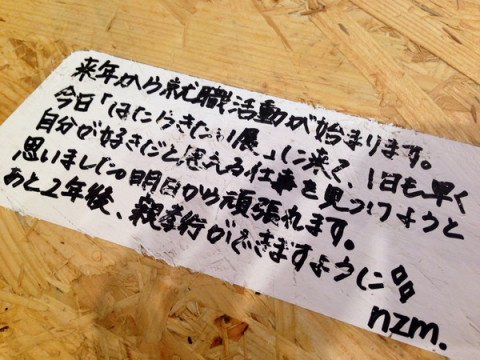 来年から就職活動が始まります。
今日「はたらきたい展」に来て、1日も早く
自分が好きだと思える仕事を見つけようと
思いました。明日から頑張れます。
あと2年後、親孝行ができますように
nzm.